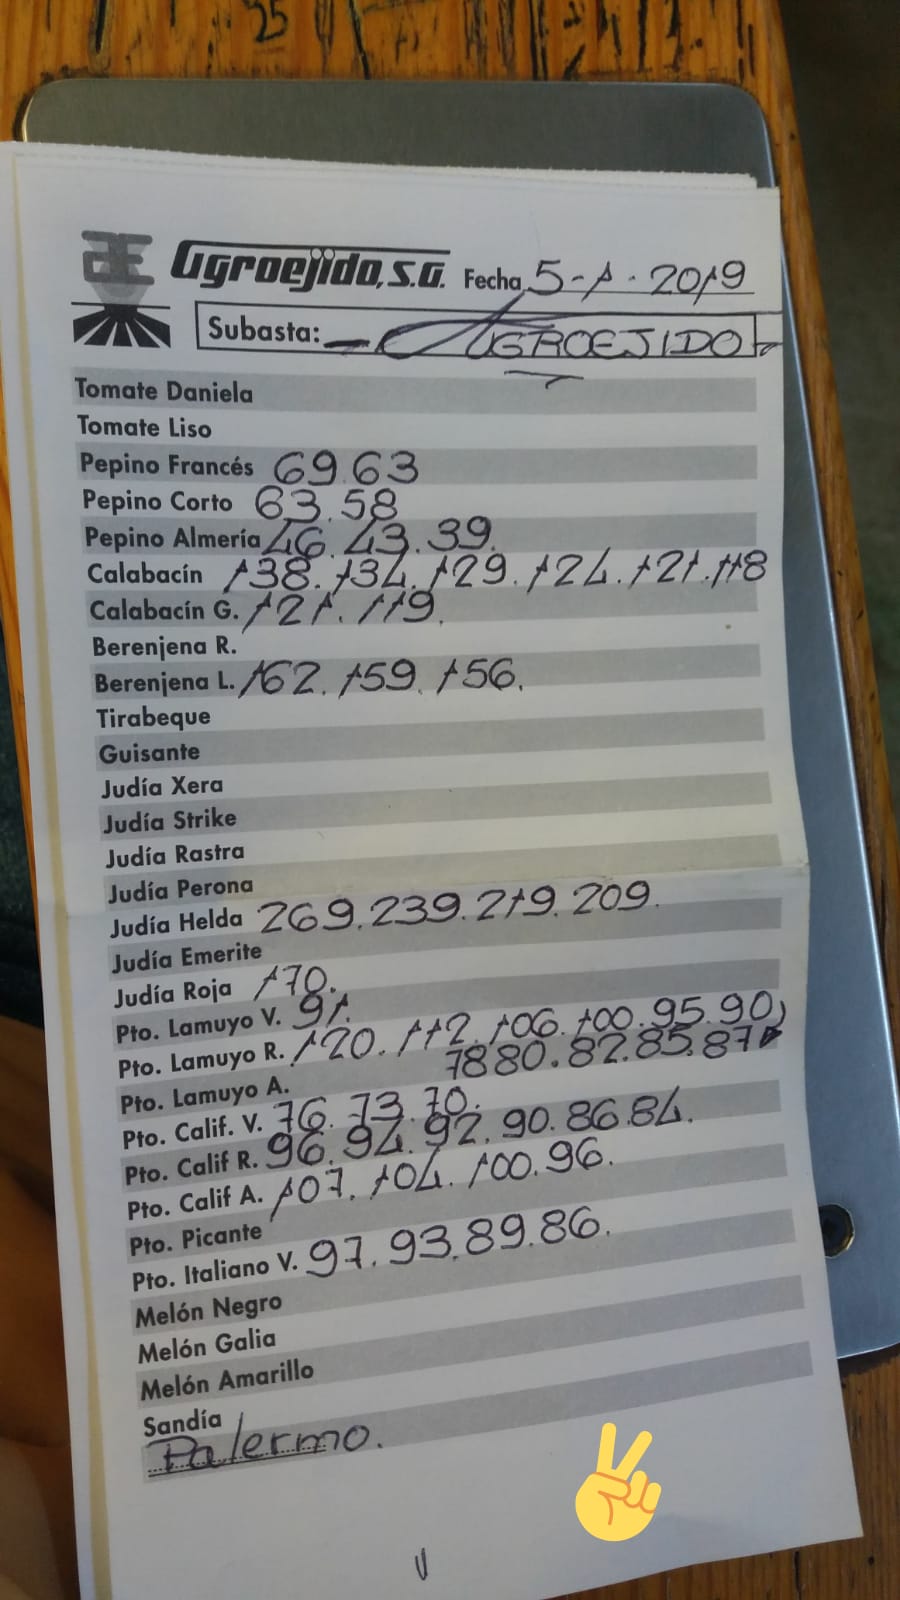 Agroejido, S.G. Fecha 5-1-2019
Subasta: AGROEJIDO
Tomate Daniela
Tomate Liso
Pepino Francés 69.63
Pepino Corto 63.58
Pepino Almería 46.43.39.
Calabacín 138.134.129.124.121.118
Calabacín G. 121.119.
Berenjena R.
Berenjena L. 162.159.156.
Tirabeque
Guisante
Judía Xera
Judía Strike
Judía Rastra
Judía Perona
Judía Helda 269.239.219.209.
Judía Emerite
Judía Roja 170.
Pto. Lamuyo V. 91.
Pto. Lamuyo R. 120.112.106.100.95.90
7880.82.85.87
Pto. Lamuyo A.
Pto. Calif. V. 76.73.70.
Pto. Calif R. 96.94.92.90.86.84.
Pto. Calif A. 107.104.100.96.
Pto. Picante
Pto. Italiano V. 97.93.89.86.
Melón Negro
Melón Galia
Melón Amarillo
Sandía
Palermo.